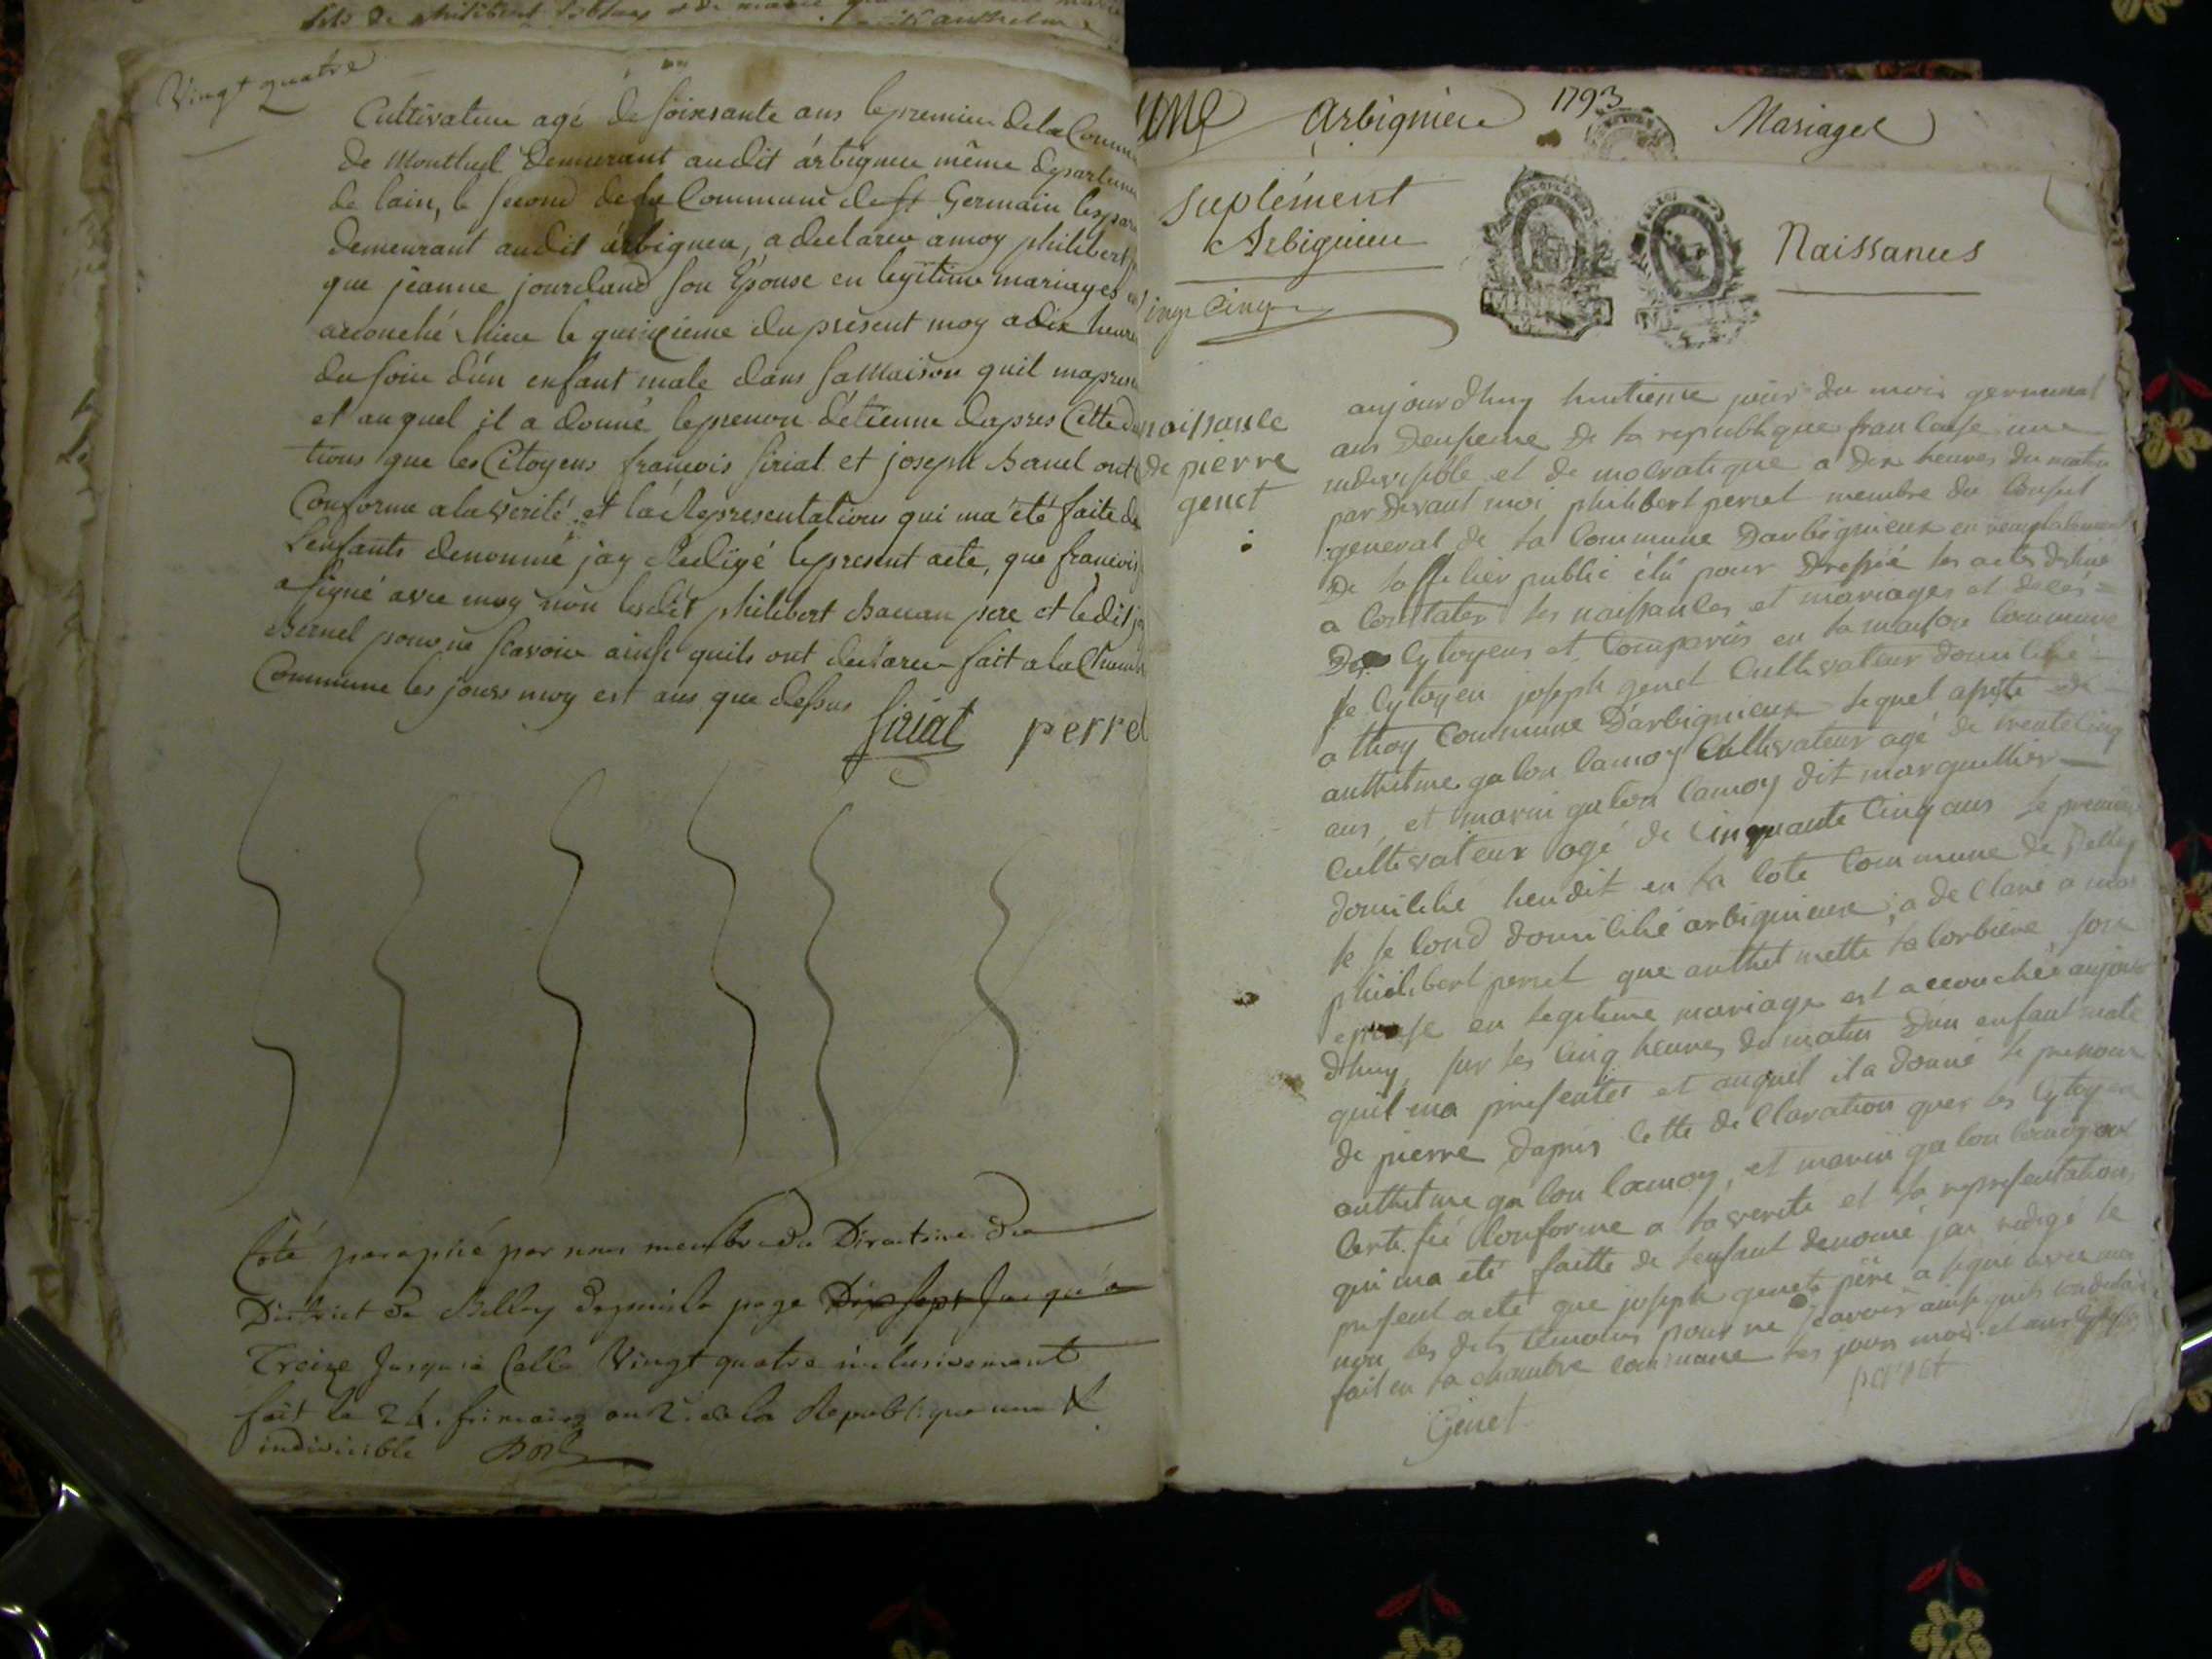 fils de philibert et de marie
Vingt quatre
Cultivateur agé de soixsante ans le premier de la Commu
de Montluel demeurant audit arbignieu même departeme
de lain, le second de la Commune de st Germain les par
demeurant audit arbigneu, a declarer a moy philibert
que jeanne jourdand son Epouse en legitime mariages est
accouché hier le quinzieme du present moy a dix heure
du soir d'un enfant male dans sa Maison quil ma prese
et auquel il a donné le prenom détienne dapres Cette de
tions que les Citoyens francois siriat et joseph Bernel ont
Conforme a la verité et la Representations qui ma été faite de
Lenfants denommé jay Redigé le present acte, que francois
a signé avec moy non lesdit philibert pere et ledit jo
Bernel pour ne scavoir ainsi quils ont declarer fait a la Chamb
Commune les jours moy est ans que dessus
siriat perret
Coté paraphé par nous membre du Directoire du
District de Belley depuis la page Dix sept jusqu'a
Treize Jusqu'à Celle Vingt quatre inclusivement
fait le 24. frimaire an 2.e de la Republique une &
indivisible
une Arbignieu 1793 Mariages
Suplément
Arbignieu
Naissances
ingt Cinq
naissance
de pierre
genet
aujourdhuy huitieme jour du mois germinal
ans deuxieme de la republique francaise une
indivisible et democratique a dix heures du matin
par devant moi philibert perret membre du Conseil
general de la Commune Darbignieux en remplacement
De lofficier public élu pour Dressé les actes destiné
a Constater les naissances et mariages et décés
Des Cytoyens et Comparûs en la maison Commune
le Cytoyen joseph genet Cultivateur domicilié
a thoy Commune Darbignieux lequel assisté de
anthelme galon lamoy Cultivateur agé de trente cinq
ans et marin galon lamoy dit marguillier
Cultivateur agé de Cinquante Cinq ans le premier
domicilié lieu dit en la Cote Commune de Belley
le second domicilié arbignieux, a declaré a moi
philibert perret que anthelmette la corbiere son
epouse en legitime mariage est accouchée aujour
dhuy sur les cinq heures du matin Dun enfant male
quil ma presenter et auquel il a donné le prenom
de pierre Dapres cette declaration que les Cytoyens
anthelme galon lamoy, et marin galon lamoy ont
Certifié Conforme a la verite et la representation
qui ma eté faitte de lenfant denomé jai redigé le
present acte que joseph genet père a signé avec moi
non les dits temoins pour ne scavoir ainsi quils ont declaré
fait en la chambre commune les jours mois et an
perret
Genet